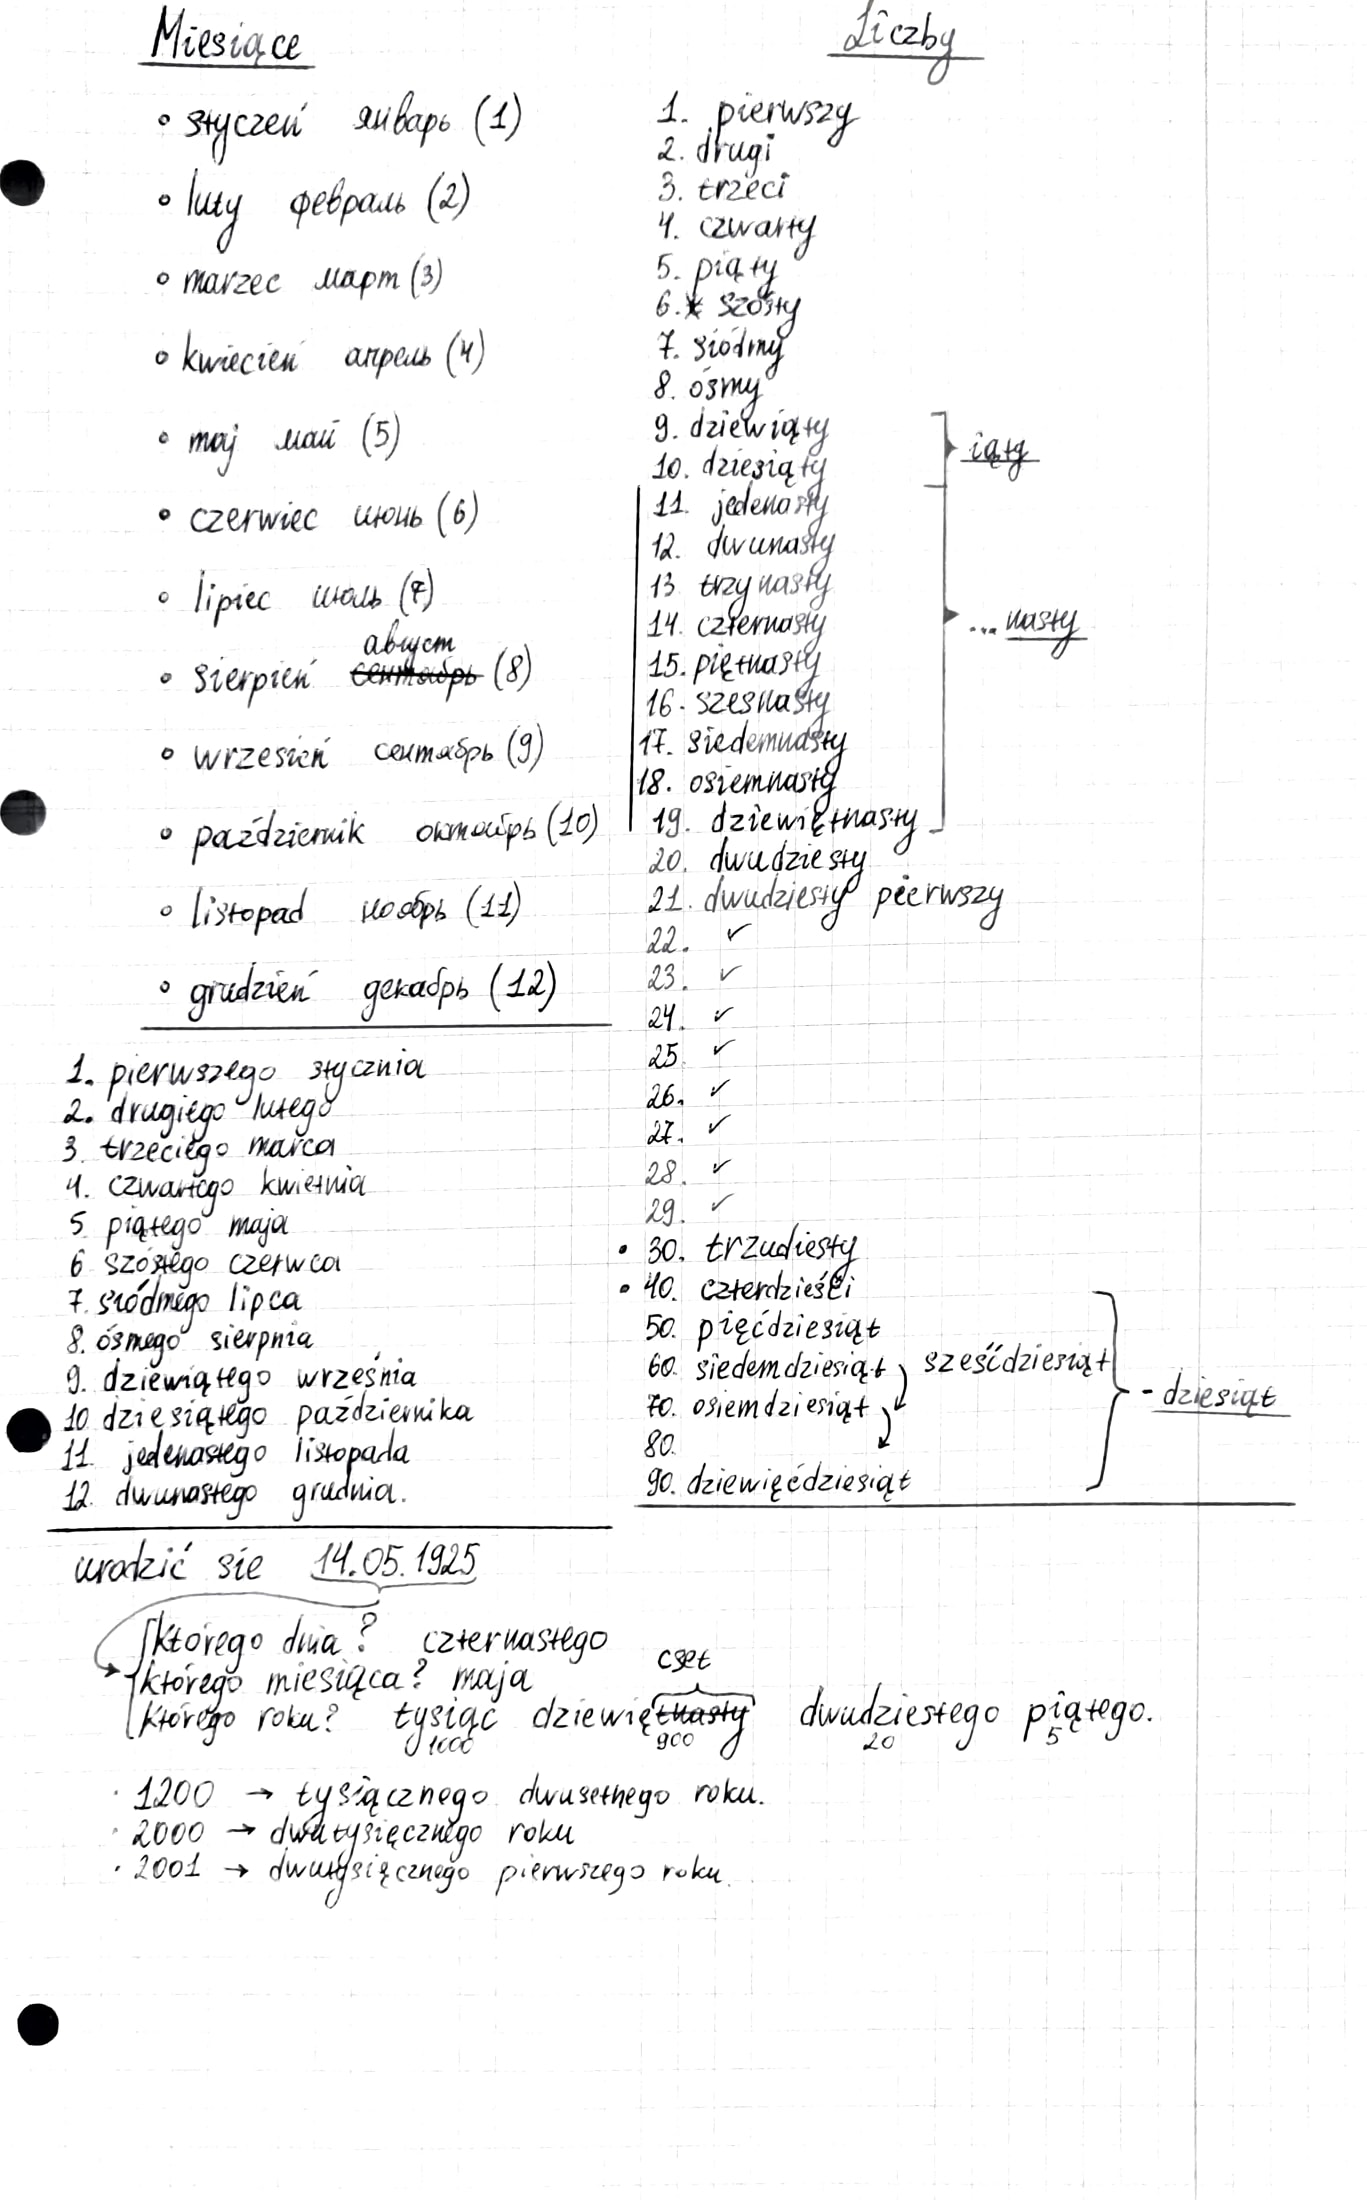 Miesiące
• styczeń январь (1)
• luty февраль (2)
• marzec март (3)
• kwiecień апрель (4)
• maj май (5)
• czerwiec июнь (6)
• lipiec июль (7)
август
• sierpień сентябрь (8)
• wrzesień сентябрь (9)
• październik октябрь (10)
• listopad ноябрь (11)
• grudzień декабрь (12)
1. pierwszego stycznia
2. drugiego lutego
3. trzeciego marca
4. czwartego kwietnia
5 piątego maja
6 szóstego czerwca
7. siódmego lipca
8. ósmego sierpnia
9. dziewiątego września
10 dziesiątego października
11. jedenastego listopada
12. dwunastego grudnia.
Liczby
1. pierwszy
2. drugi
3. trzeci
4. czwarty
5. piąty
6. szósty
7. siódmy
8. ósmy
9. dziewiąty
10. dziesiąty
iąty
11. jedenasty
12. dwunasty
13 trzynasty
14. czternasty
15. piętnasty
16. szesnasty
17. siedemnasty
18. osiemnasty
19. dziewiętnasty
... nasty
20. dwudziesty
21. dwudziesty pierwszy
22. ✓
23. ✓
24. ✓
25. ✓
26. ✓
27. ✓
28. ✓
29. ✓
• 30. trzudiesty
• 40. czterdzieści
50. pięćdziesiąt
60. siedemdziesiąt sześćdziesiąt
70. osiemdziesiąt
80.
90. dziewięćdziesiąt
- dziesiąt
urodzić sie 14.05.1925
którego dnia? czternastego
którego miesiąca? maja
cset
którego roku? tysiąc dziewiętnasty dwudziestego piątego.
1000 900 20 5
· 1200 → tysiącznego dwusetnego roku.
· 2000 → dwutysięcznego roku
· 2001 → dwutysięcznego pierwszego roku.